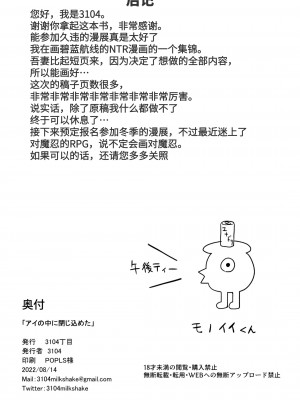 后记
您好，我是3104。
谢谢你拿起这本书，非常感谢。
能参加久违的漫展真是太好了
我在画碧蓝航线的NTR漫画的一个集锦。
吾妻比起短页来，因为决定了想做的全部内容，
所以能画好…
这次的稿子页数很多，
非常非常非常非常非常非常非常厉害。
说实话，除了原稿我什么都做不了
终于可以休息了…
接下来预定报名参加冬季的漫展，不过最近迷上了
对魔忍的RPG，说不定会画对魔忍。
如果可以的话，还请您多多关照
午後ティー
モノイイくん
奥付
「アイの中に閉じ込めた」
発行 3104丁目
発行者 3104
印刷 POPLS様
2022/08/14
Mail:3104milkshake@gmail.com
Twitter:3104milkshake
18才未満の閲覧・購入禁止
無断転載・転用・WEBへの無断アップロード禁止